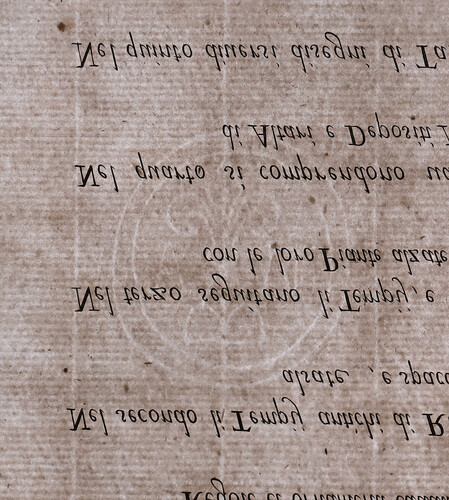 Regole et ornamenti
Nel secondo li Tempij antichi di R
alsate, e spacc
Nel terzo seguitano li Tempij, e
con le loro Piante alzate
Nel quarto si comprendono ua
di Altari e Depositi
Nel quinto diuersi disegni di Ta